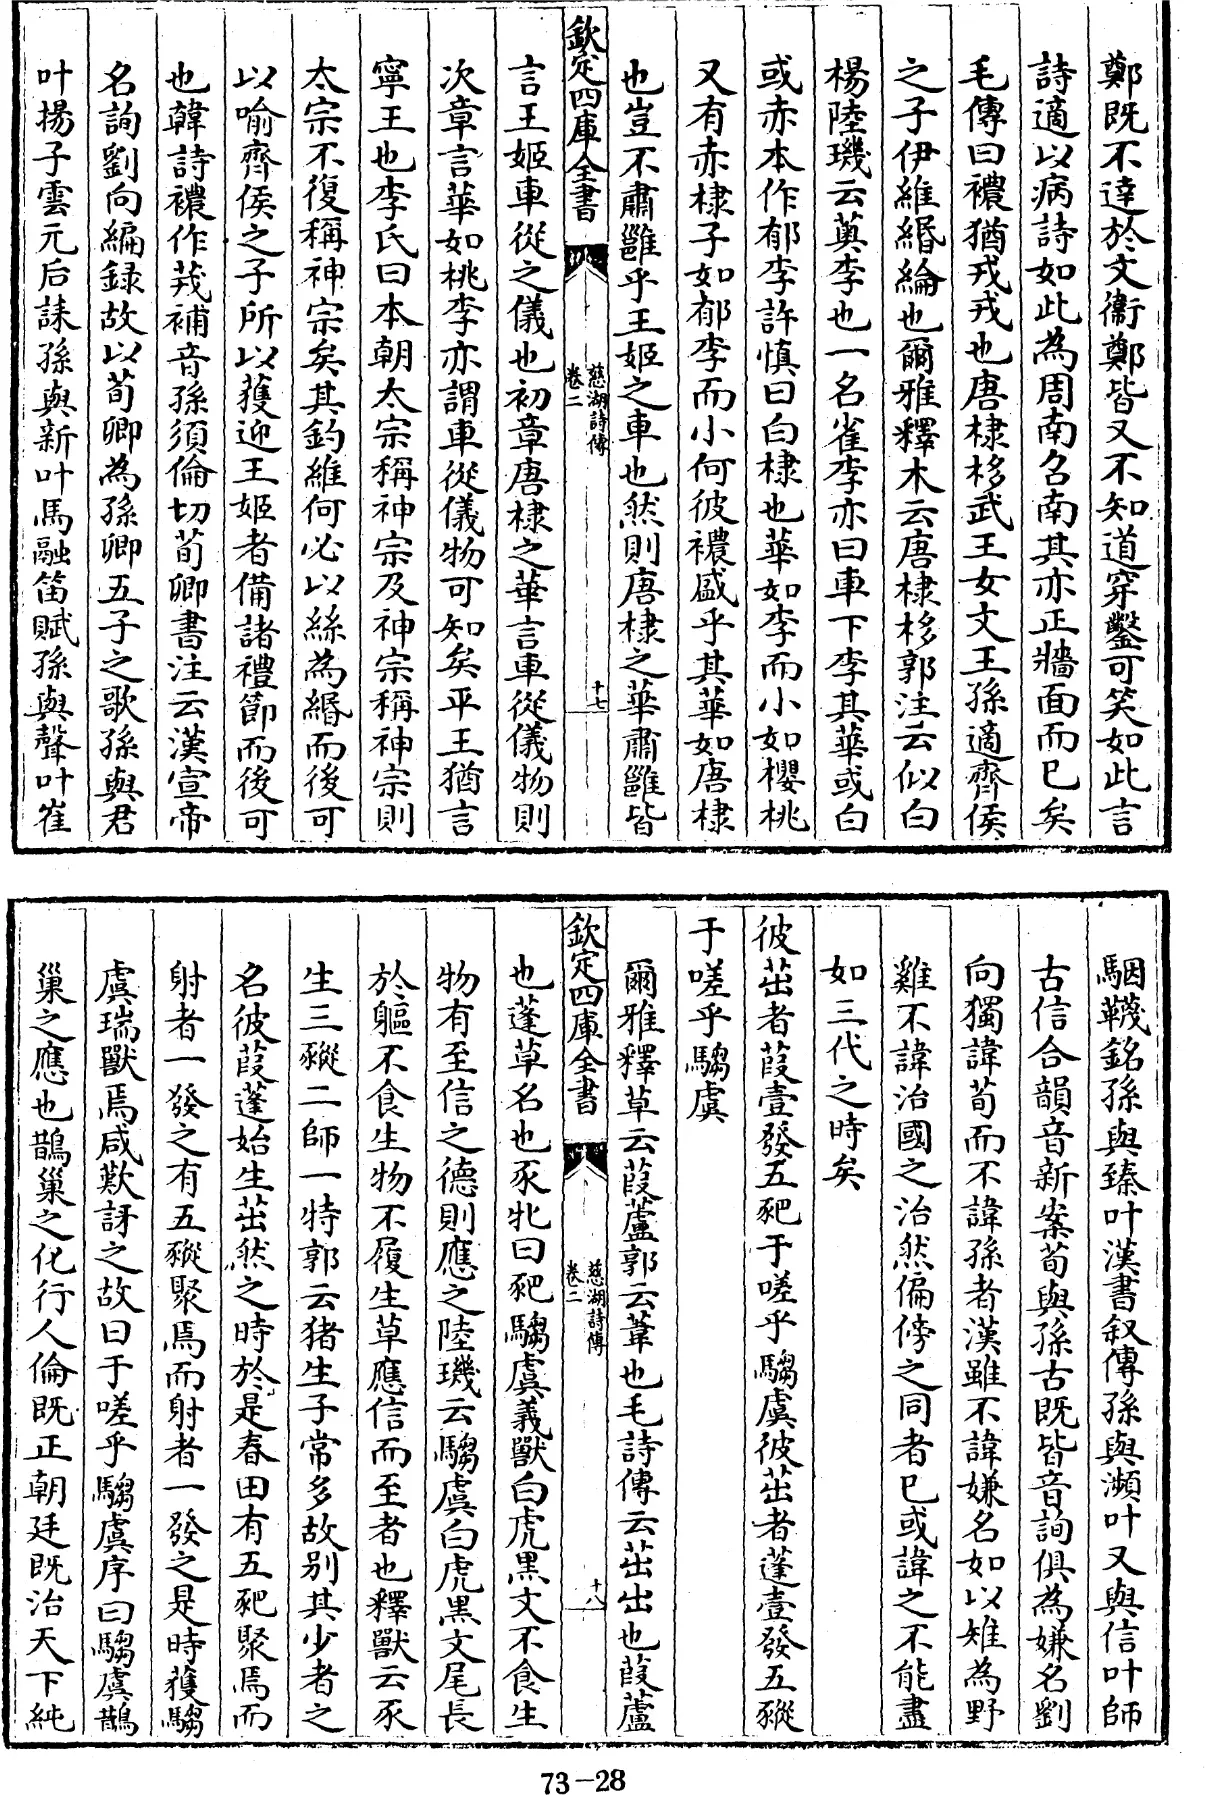 鄭既不達於文衞鄭皆又不知道穿鑿可笑如此言
詩適以病詩如此為周南召南其亦正牆面而已矣
毛傳曰襛猶戎戎也唐棣栘武王女文王孫適齊侯
之子伊維緡綸也爾雅釋木云唐棣栘郭注云似白
楊陸璣云薁李也一名雀李亦曰車下李其華或白
或赤本作郁李許慎曰白棣也華如李而小如櫻桃
又有赤棣子如郁李而小何彼襛盛乎其華如唐棣
也豈不肅雝乎王姬之車也然則唐棣之華肅雝皆
欽定四庫全書
慈湖詩傳
卷二
十七
言王姬車從之儀也初章唐棣之華言車從儀物則
次章言華如桃李亦謂車從儀物可知矣平王猶言
寧王也李氏曰本朝太宗稱神宗及神宗稱神宗則
太宗不復稱神宗矣其釣維何必以絲為緡而後可
以喻齊侯之子所以獲迎王姬者備諸禮節而後可
也韓詩襛作茙補音孫須倫切荀卿書注云漢宣帝
名詢劉向編録故以荀卿為孫卿五子之歌孫與君
叶揚子雲元后誄孫與新叶馬融笛賦孫與聲叶崔
駰韈銘孫與臻叶漢書叙傳孫與瀕叶又與信叶師
古信合韻音新案荀與孫古既皆音詢俱為嫌名劉
向獨諱荀而不諱孫者漢雖不諱嫌名如以雉為野
雞不諱治國之治然偏傍之同者已或諱之不能盡
如三代之時矣
彼茁者葭壹發五豝于嗟乎騶虞彼茁者蓬壹發五豵
于嗟乎騶虞
爾雅釋草云葭蘆郭云葦也毛詩傳云茁出也葭蘆
欽定四庫全書
慈湖詩傳
卷二
十八
也蓬草名也豕牝曰豝騶虞義獸白虎黑文不食生
物有至信之德則應之陸璣云騶虞白虎黑文尾長
於軀不食生物不履生草應信而至者也釋獸云豕
生三豵二師一特郭云猪生子常多故别其少者之
名彼葭蓬始生茁然之時於是春田有五豝聚焉而
射者一發之有五豵聚焉而射者一發之是時獲騶
虞瑞獸焉咸歎訝之故曰于嗟乎騶虞序曰騶虞鵲
巢之應也鵲巢之化行人倫既正朝廷既治天下純
73-28